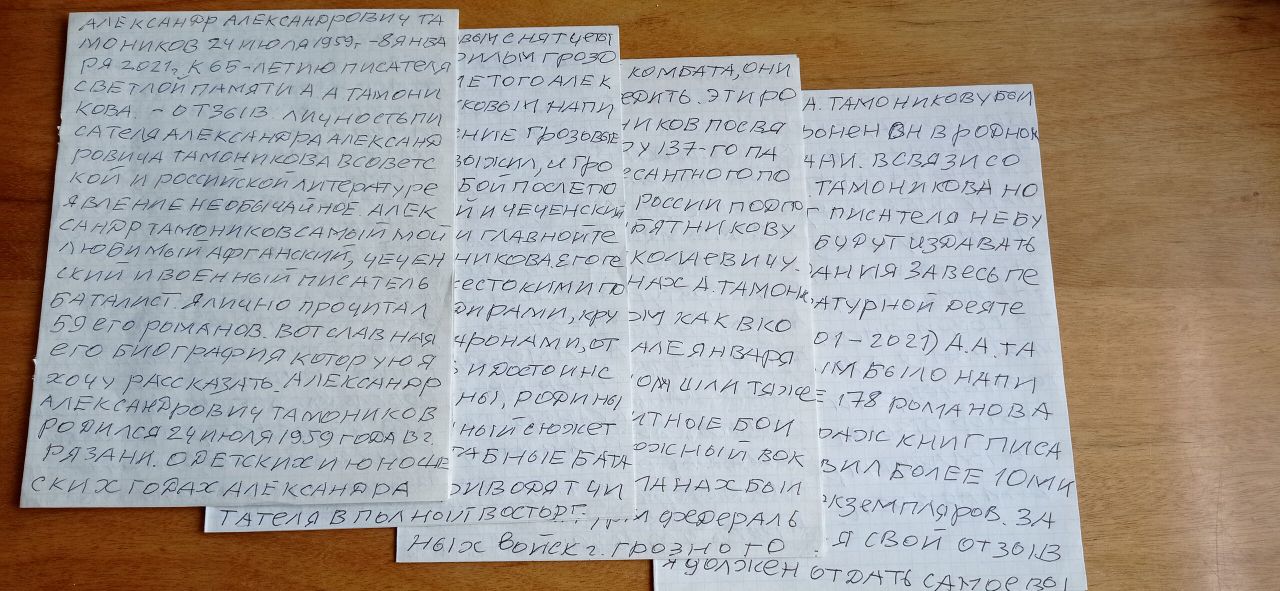 АЛЕКСАНДР АЛЕКСАНДРОВИЧ ТА
МОНИКОВ 24 ИЮЛЯ 1959г. - 8 ЯНВА
РЯ 2021г. К 65-ЛЕТИЮ ПИСАТЕЛЯ
СВЕТЛОЙ ПАМЯТИ А А ТАМОНИ
КОВА. - ОТЗЫВ. ЛИЧНОСТЬ ПИ
САТЕЛЯ АЛЕКСАНДРА АЛЕКСАНД
РОВИЧА ТАМОНИКОВА В СОВЕТС
КОЙ И РОССИЙСКОЙ ЛИТЕРАТУРЕ
ЯВЛЕНИЕ НЕОБЫЧАЙНОЕ. АЛЕК
САНДР ТАМОНИКОВ САМЫЙ МОЙ
ЛЮБИМЫЙ АФГАНСКИЙ, ЧЕЧЕН
СКИЙ И ВОЕННЫЙ ПИСАТЕЛЬ
БАТАЛИСТ. Я ЛИЧНО ПРОЧИТАЛ
59 ЕГО РОМАНОВ. ВОТ СЛАВНАЯ
ЕГО БИОГРАФИЯ КОТОРУЮ Я
ХОЧУ РАССКАЗАТЬ. АЛЕКСАНДР
АЛЕКСАНДРОВИЧ ТАМОНИКОВ
РОДИЛСЯ 24 ИЮЛЯ 1959 ГОДА В г.
РЯЗАНИ. О ДЕТСКИХ И ЮНОШЕ
СКИХ ГОДАХ АЛЕКСАНДРА
ВЫМ СНЯТ ЦЕЛЫ
ФИЛЬМ ГРОЗО
МЕТОГО АЛЕК
КОВЫМ НАПИ
ЕНИЕ ГРОЗОВЫЕ
ВЫЖИЛ, И ГРО
БОЙ ПОСЛЕ ПО
Й И ЧЕЧЕНСКИЙ
И ГЛАВНОЙ ТЕ
НИКОВА, ЕГО ГЕ
ЖЕСТОКИМИ ПО
ФИРАМИ, КРУ
АРОНАМИ, ОТ
Ь И ДОСТОИНС
НЫ, РОДИНЫ
НЫЙ СЮЖЕТ
ТАБНЫЕ БАТА
РИВОДЯТ ЧИ
ТАТЕЛЯ В ПОЛНЫЙ ВОСТОРГ.
КОМБАТА, ОНИ
ЕДИТЬ. ЭТИ РО
НИКОВ ПОСВЯ
РУ 137-ГО ПА
ЕСАНТНОГО ПО
РОССИИ ПОДПО
ЯТНИКОВУ
КОЛАЕВИЧУ.
НАХ А. ТАМОНИ
ЫМ КАК В КО
АЛЕ ЯНВАРЯ
ОМ ШЛИ ТЯЖЕ
ИТНЫЕ БОИ
ОЖНЫЙ ВОК
ЛАНАХ БЫЛ
ФЕДЕРАЛЬ
НЫХ ВОЙСК г. ГРОЗНОГО
А. ТАМОНИКОВУ БЫЛ
РОНЕН ОН В РОДНОМ
АНИ. В СВЯЗИ СО
ТАМОНИКОВА НО
Г ПИСАТЕЛЯ НЕ БУ
БУДУТ ИЗДАВАТЬ
ДАНИЯ ЗА ВЕСЬ ПЕ
РАТУРНОЙ ДЕЯТЕ
01-2021) А.А. ТА
ЫМ БЫЛО НАПИ
Е 178 РОМАНОВ А
РАЖ КНИГ ПИСА
ВИЛ БОЛЕЕ 10 МИ
КЗЕМПЛЯРОВ. ЗА
Я СВОЙ ОТЗЫВ
Я ДОЛЖЕН ОТДАТЬ САМОЕ ВЫ